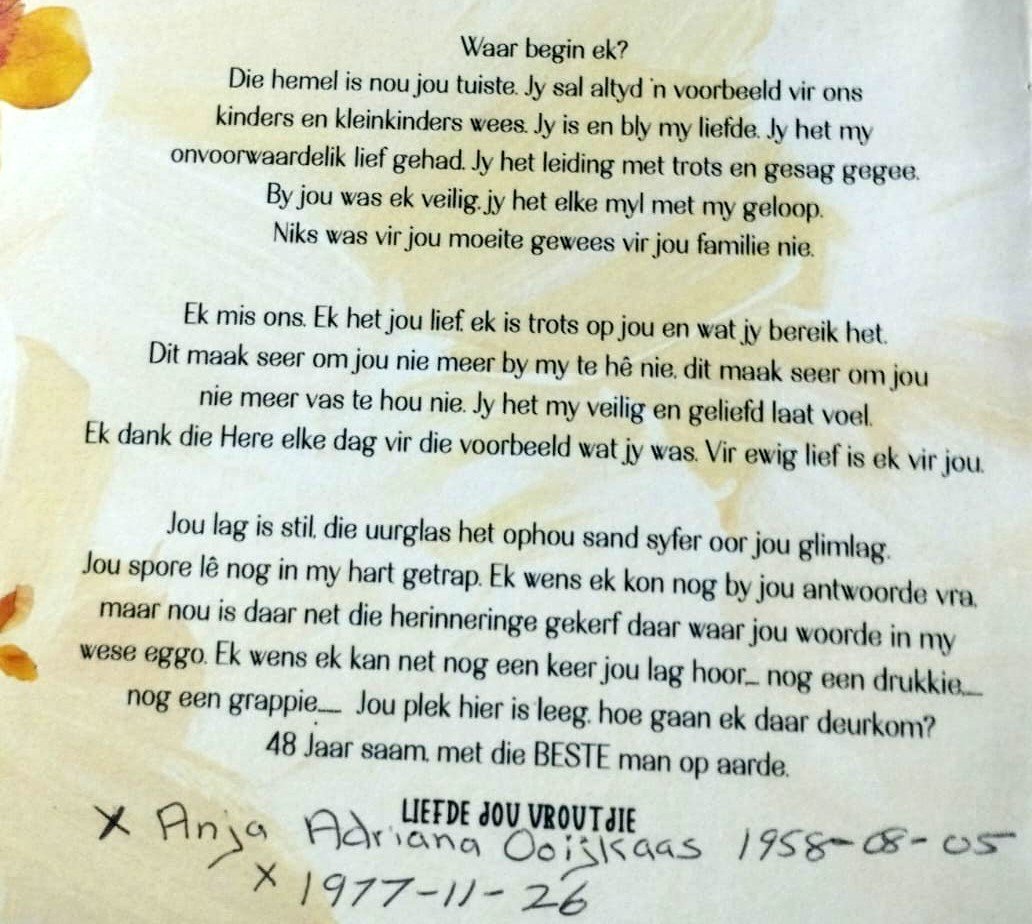 Waar begin ek?
Die hemel is nou jou tuiste. Jy sal altyd 'n voorbeeld vir ons
kinders en kleinkinders wees. Jy is en bly my liefde. Jy het my
onvoorwaardelik lief gehad. Jy het leiding met trots en gesag gegee.
By jou was ek veilig, jy het elke myl met my geloop.
Niks was vir jou moeite gewees vir jou familie nie.
Ek mis ons. Ek het jou lief, ek is trots op jou en wat jy bereik het.
Dit maak seer om jou nie meer by my te hê nie, dit maak seer om jou
nie meer vas te hou nie. Jy het my veilig en geliefd laat voel.
Ek dank die Here elke dag vir die voorbeeld wat jy was. Vir ewig lief is ek vir jou.
Jou lag is stil, die uurglas het ophou sand syfer oor jou glimlag.
Jou spore lê nog in my hart getrap. Ek wens ek kon nog by jou antwoorde vra,
maar nou is daar net die herinneringe gekerf daar waar jou woorde in my
wese eggo. Ek wens ek kan net nog een keer jou lag hoor... nog een drukkie....
nog een grappie.... Jou plek hier is leeg, hoe gaan ek daar deurkom?
48 Jaar saam, met die BESTE man op aarde.
LIEFDE JOU VROUTJIE
X Anja Adriana Ooijkaas 1958-08-05
X 1977-11-26